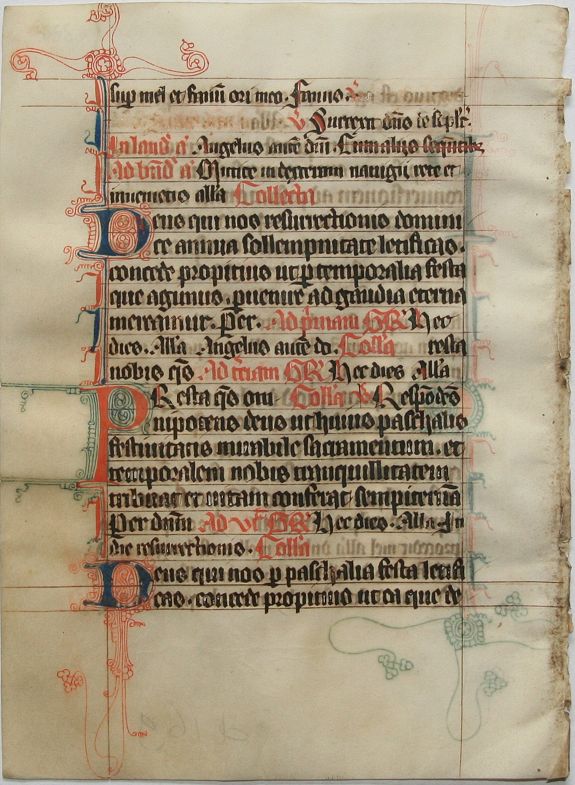 sup mel et fauū ori meo. fauno.
℣ Surrexit dn̄s de seplc̄.
In laud a Angelus autē dn̄i. Cum aliis sequētib;
Ad bn̄d a Mittite in dexteram navigii rete et
invenietis alla Collecta
Deus qui nos resurrectionis domini
ce annua sollempnitate letificas.
concede propitius ut p temporalia festa
que agimus. pvenire ad gaudia eterna
mereamur. Per. Ad primam HR Hec
dies. Alla. Angelus autē dn̄. Collā resta
nobis qs̄o Ad tciam HR Hec dies Alla
PResta qs̄o om̄ Collā Respōdēs
nipotens deus ut huius paschalis
festivitatis mirabile sacramentum. et
temporalem nobis tranquillitatem
tribuat et vitam conferat sempiternā
Per dnm̄ Ad vī HR Hec dies. Alla In
die resurrectionis. Collā
Deus qui nos p paschalia festa letifi
cas. concede propitius ut ea que de